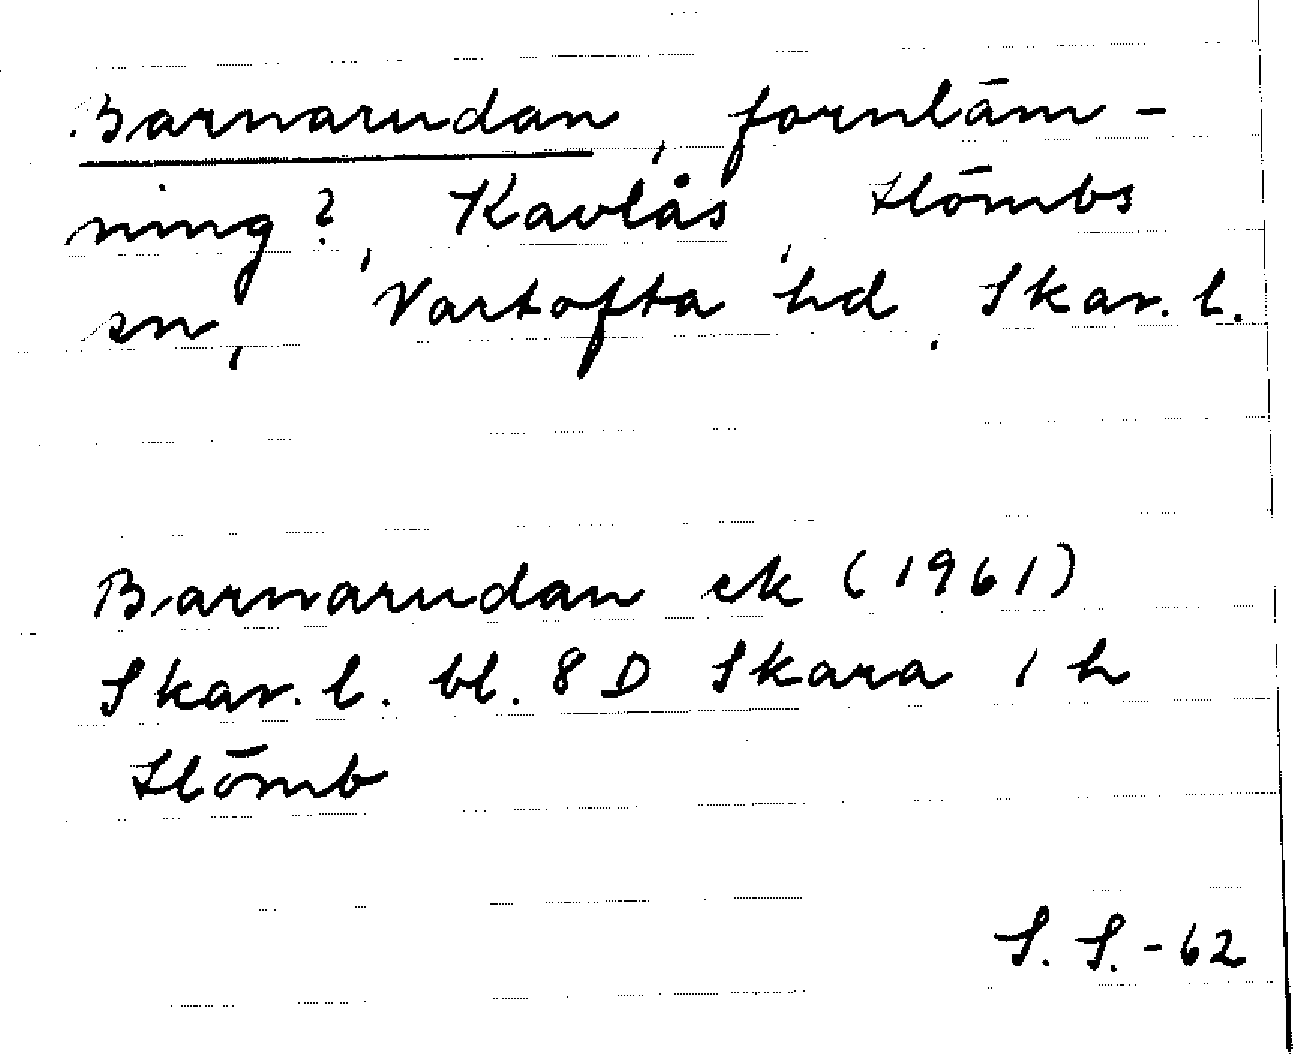 Barnarudan, fornläm-
ning?, Kavlås, Hömbs
sn, Vartofta hd. Skar. l.
Barnarudan ek (1961)
Skar. l. bl. 8 D Skara 1 h
Hömb
S. S. -62